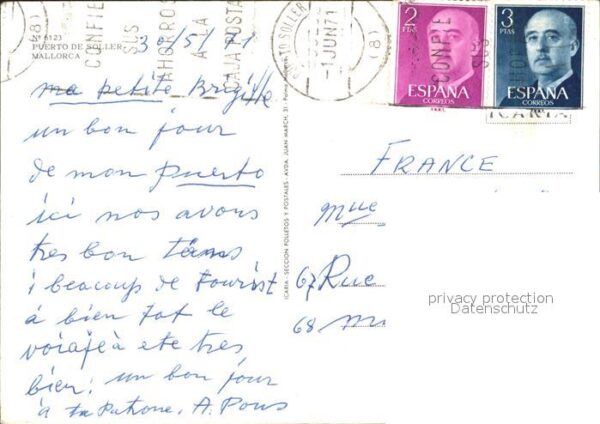 Nº 5123
PUERTO DE SOLLER
MALLORCA
30/5/71
CONFIE
SUS
AHORROS
A LA
CAJA POSTAL
SOLLER
1 JUN 71
(8)
2
PTAS
ESPAÑA
CORREOS
3
PTAS
ESPAÑA
CORREOS
CONFIE
SUS
ICARIA
ma petite Brigitte
un bon jour
de mon puerto
ici nos avons
tres bon tems
i beaucoup de tourist
á bien tot le
voiaje à ete tres
bien: un bon jour
á ta patrone, A. Pons
ICARIA - SECCION FOLLETOS Y POSTALES - AVDA. JUAN MARCH, 31 - Palma
FRANCE
Mue
67 Rue
68
privacy protection
Datenschutz